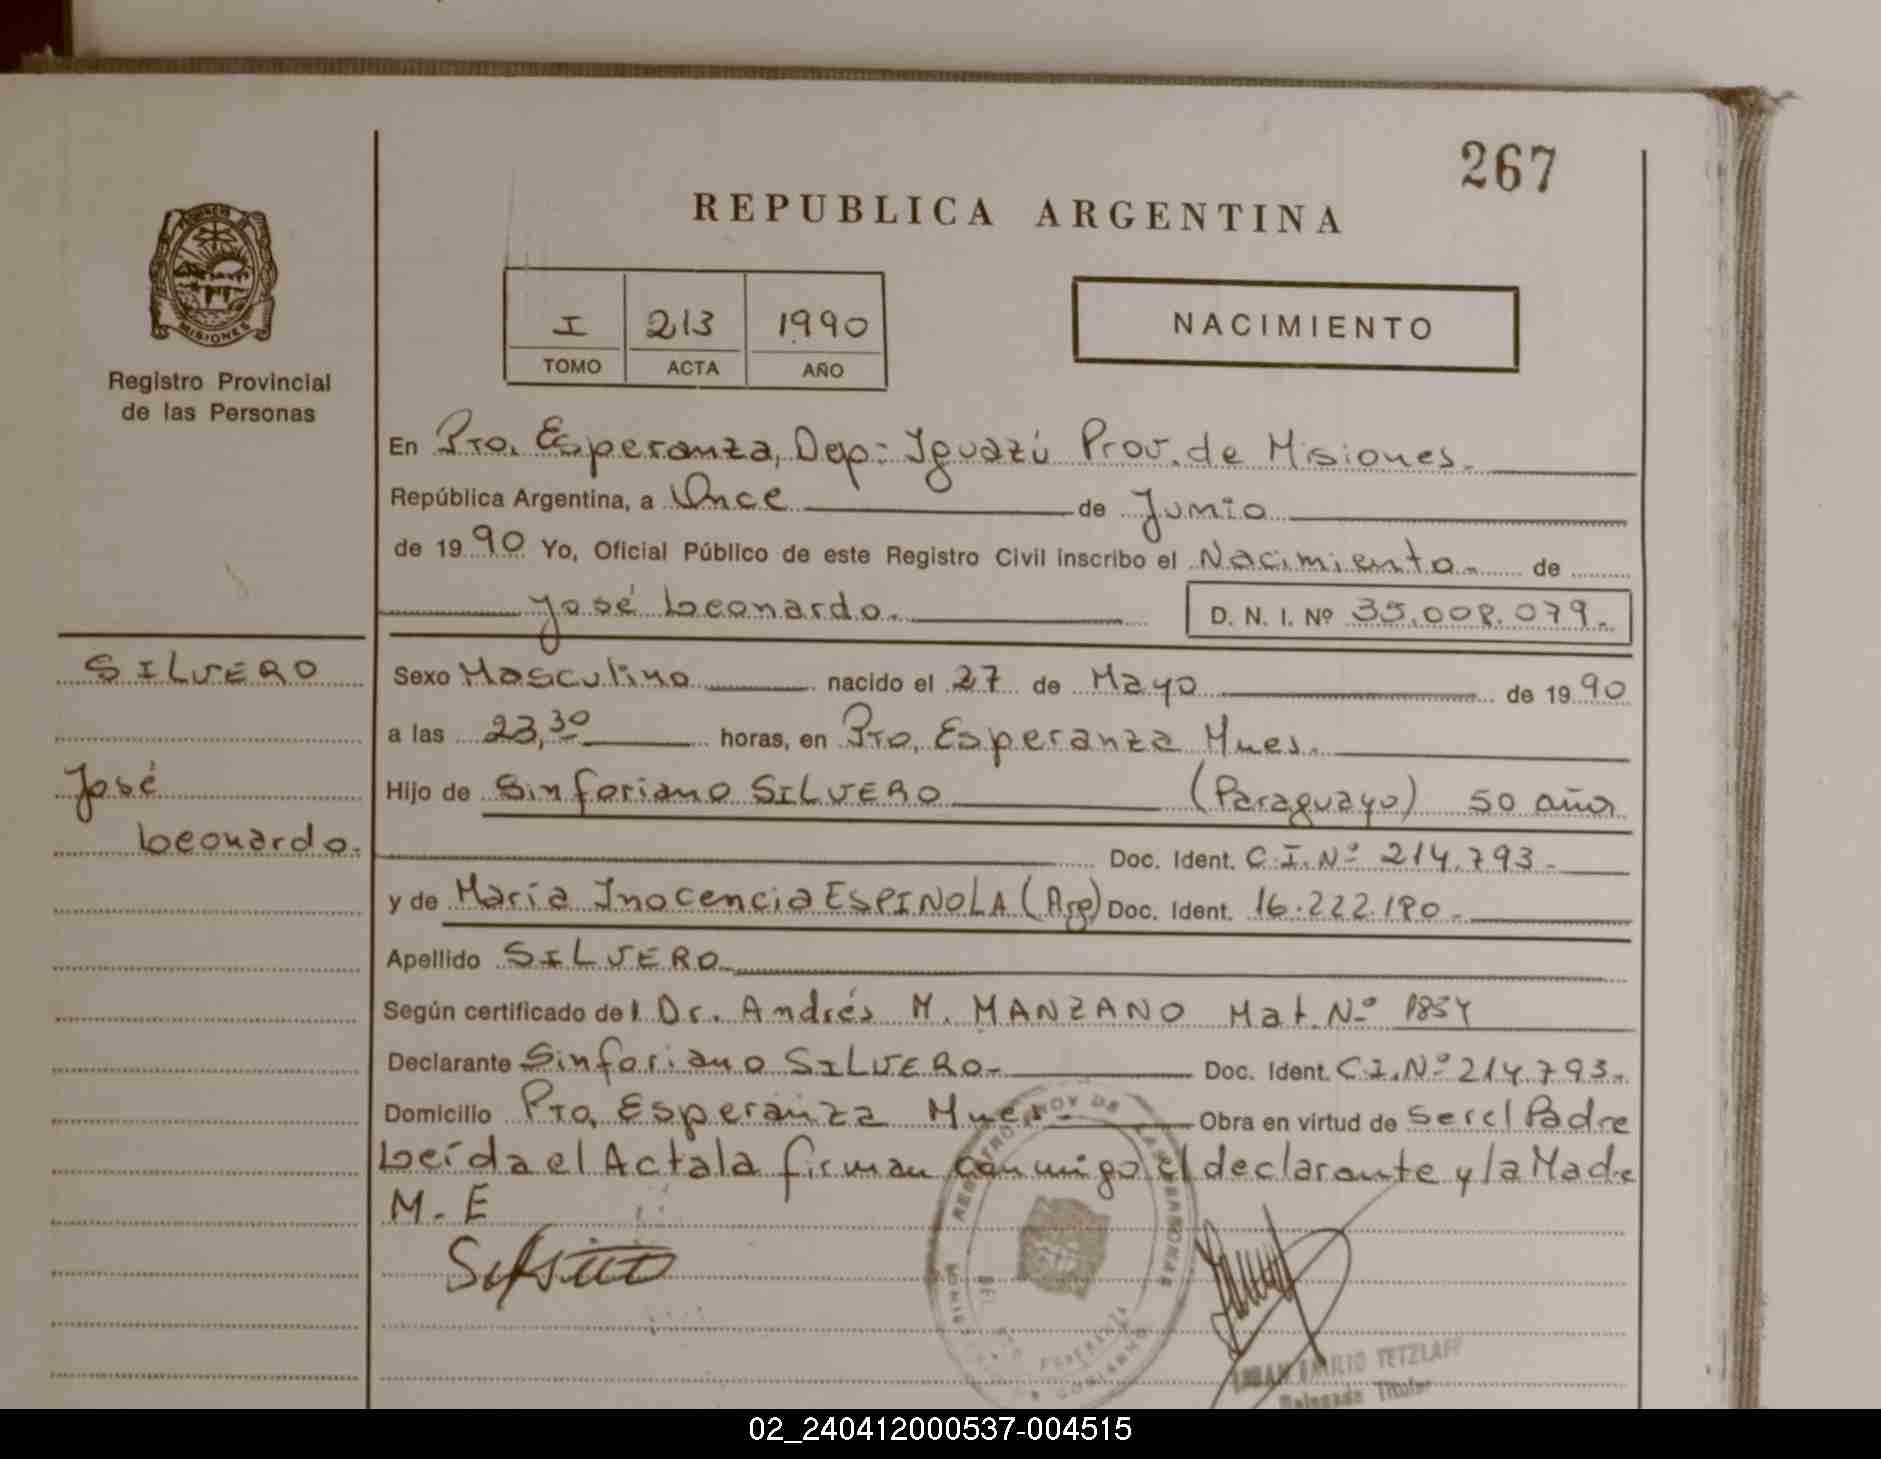 267
REPUBLICA ARGENTINA
MISIONES
Registro Provincial
de las Personas
I 213 1990
TOMO ACTA AÑO
NACIMIENTO
En Pto. Esperanza, Dep: Iguazú Prov. de Misiones.
República Argentina, a Once de Junio
de 1990 Yo, Oficial Público de este Registro Civil inscribo el Nacimiento. de
José Leonardo. D. N. I. Nº 35.008.079.
SILVERO
José
Leonardo.
Sexo Masculino nacido el 27 de Mayo de 1990
a las 23,30 horas, en Pto. Esperanza Mnes.
Hijo de Sinforiano SILVERO (Paraguayo) 50 años
Doc. Ident. C.I.Nº 214.793.
y de María Inocencia ESPINOLA (Arg) Doc. Ident. 16.222.190.
Apellido SILVERO
Según certificado del Dr. Andrés M. MANZANO Mat. Nº
Declarante Sinforiano SILVERO. Doc. Ident. C.I.Nº 214.793.
Domicilio Pto. Esperanza Mnes. Obra en virtud de ser el Padre
Leída el Acta la firman conmigo el declarante y la Madre
M. E
JUAN EMILIO TETZLAFF
Delegado Titular
02_240412000537-004515